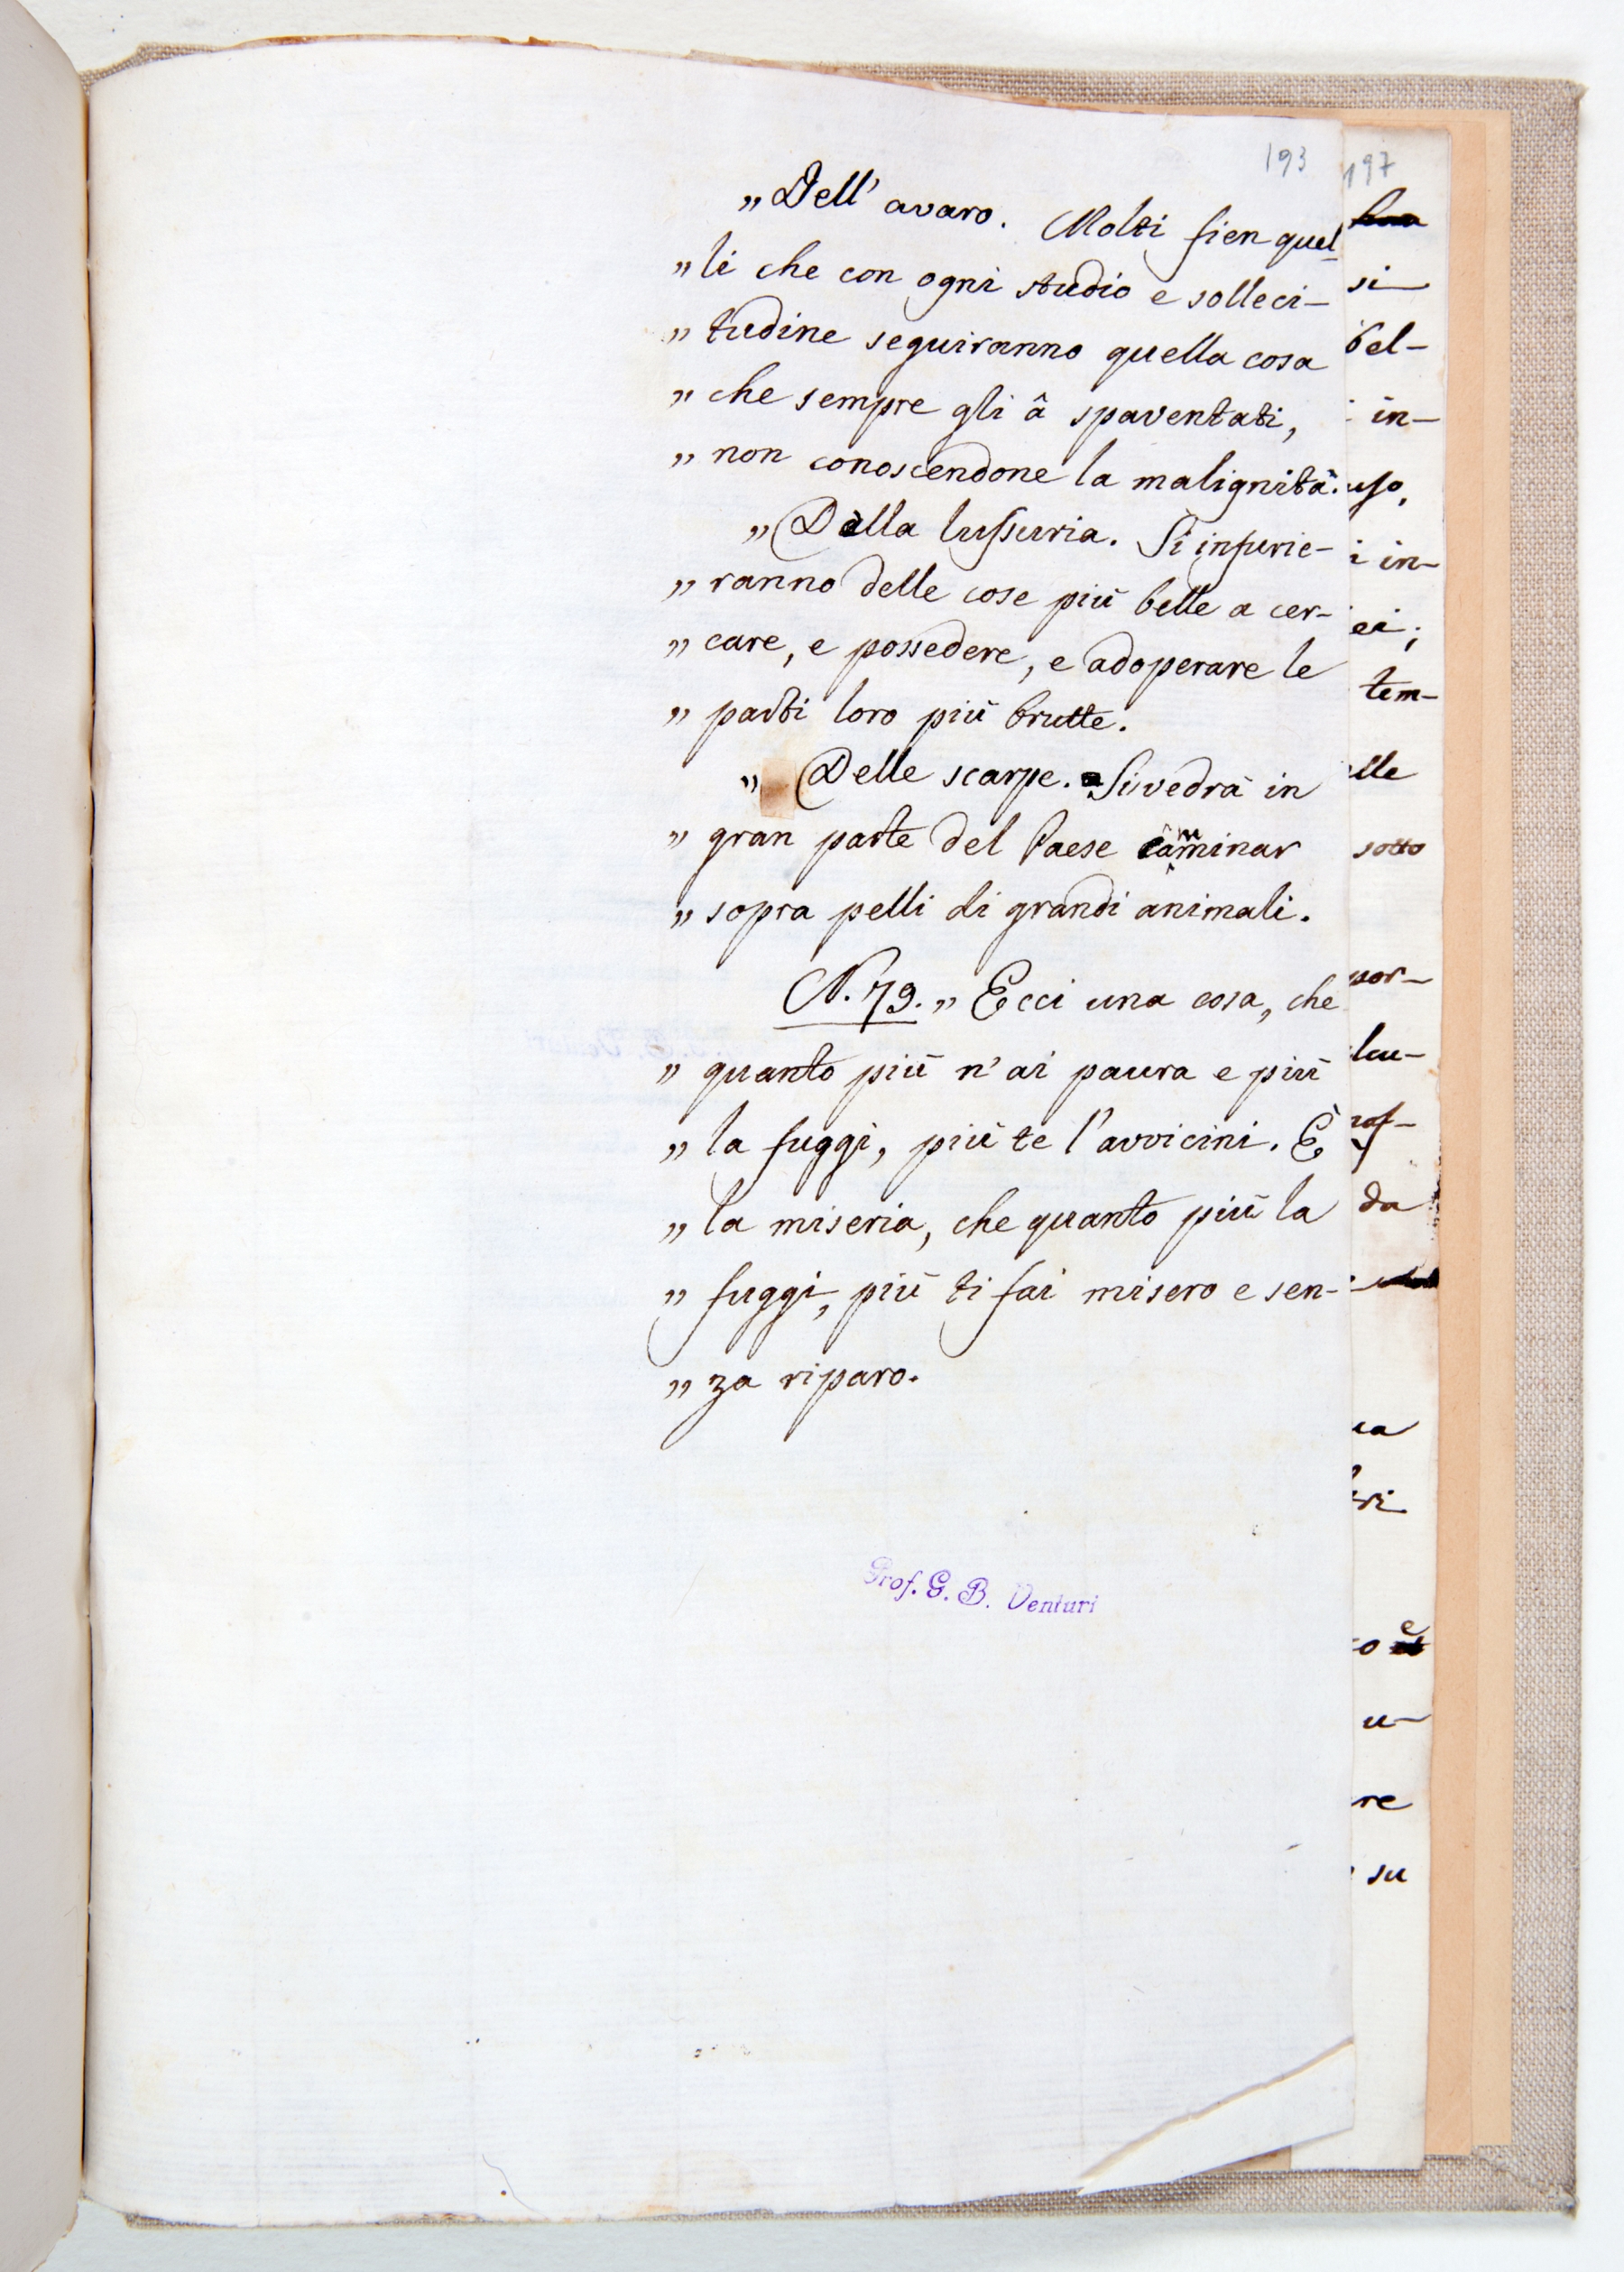 193
197
„Dell' avaro. Molti fien quel
„li che con ogni studio e solleci-
„tudine seguiranno quella cosa
„che sempre gli â spaventati,
„non conoscendone la malignità.
„Della lussuria. Si infurie-
„ranno delle cose più belle a cer-
„care, e possedere, e adoperare le
„parti loro più brutte.
„Delle scarpe. Si vedrà in
„gran parte del Paese camminar
„sopra pelli di grandi animali.
N. 79. „Ecci una cosa, che
„quanto più n'ai paura e più
„la fuggi, più te l'avvicini. È
„la miseria, che quanto più la
„fuggi, più ti fai misero e sen-
„za riparo.
Prof. G. B. Venturi
si
bel-
in-
uso,
i in-
ei;
tem-
lle
sotto
por-
lau-
da
e
u-
re
su